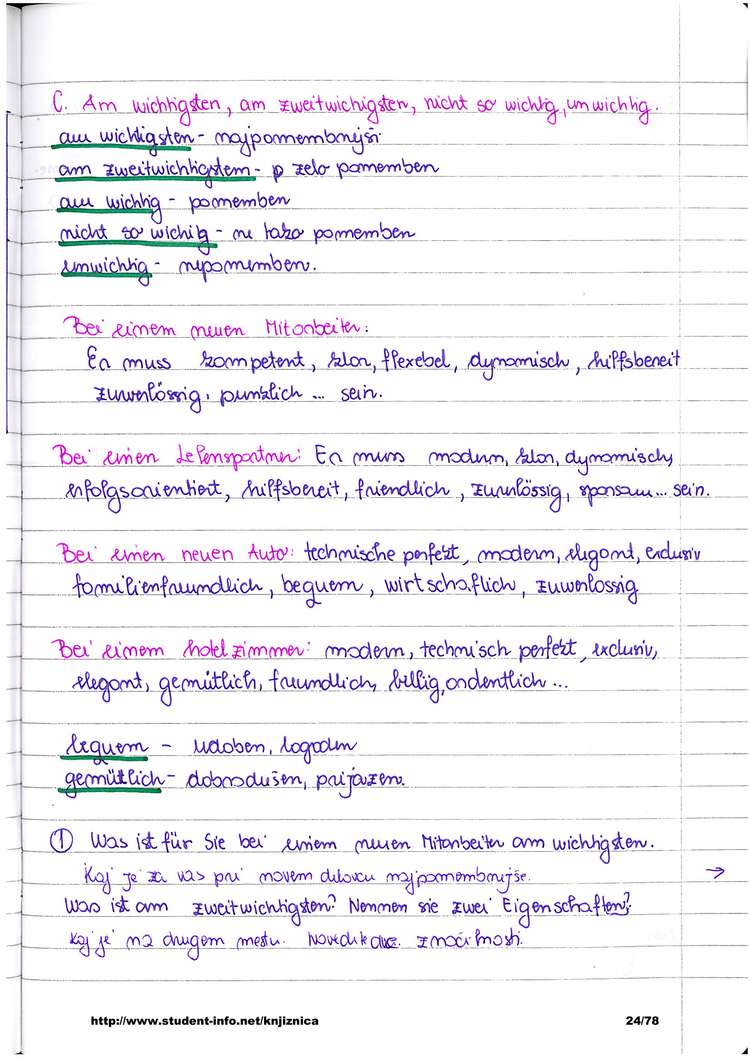 C. Am wichtigsten, am zweitwichigsten, nicht so wichtig, unwichtig.
am wichtigsten - najpomembnejši
am zweitwichtigstem - p zelo pomemben
am wichtig - pomemben
nicht so wichtig - ne tako pomemben
unwichtig - nepomemben.
Bei einem neuen Mitarbeiter:
Er muss kompetent, klar, flexebel, dynamisch, hilfsbereit
zuverlässig, punklich ... sein.
Bei einen Lebenspartner: Er muss modern, klar, dynamisch,
erfolgsorientiert, hilfsbereit, friendlich, zuverlässig, sparsam... sein.
Bei einen neuen Auto: technische perfekt, modern, elegant, exclusiv
familienfreundlich, bequem, wirtschaflich, zuverlassig
Bei einem hotelzimmer: modern, technisch perfekt, exclusiv,
elegant, gemütlich, freundlich, billig, ordentlich ...
bequem - udoben, lagoden
gemütlich - dobrodušen, prijazen.
① Was ist für Sie bei einem neuen Mitarbeiter am wichtigsten.
Kaj je za vas pri novem delavcu najpomembnejše. →
Was ist am zweitwichtigsten? Nennen sie zwei Eigenschaften?
Kaj je na drugem mestu. Navedite dve zmožnosti.
http://www.student-info.net/knjiznica 24/78